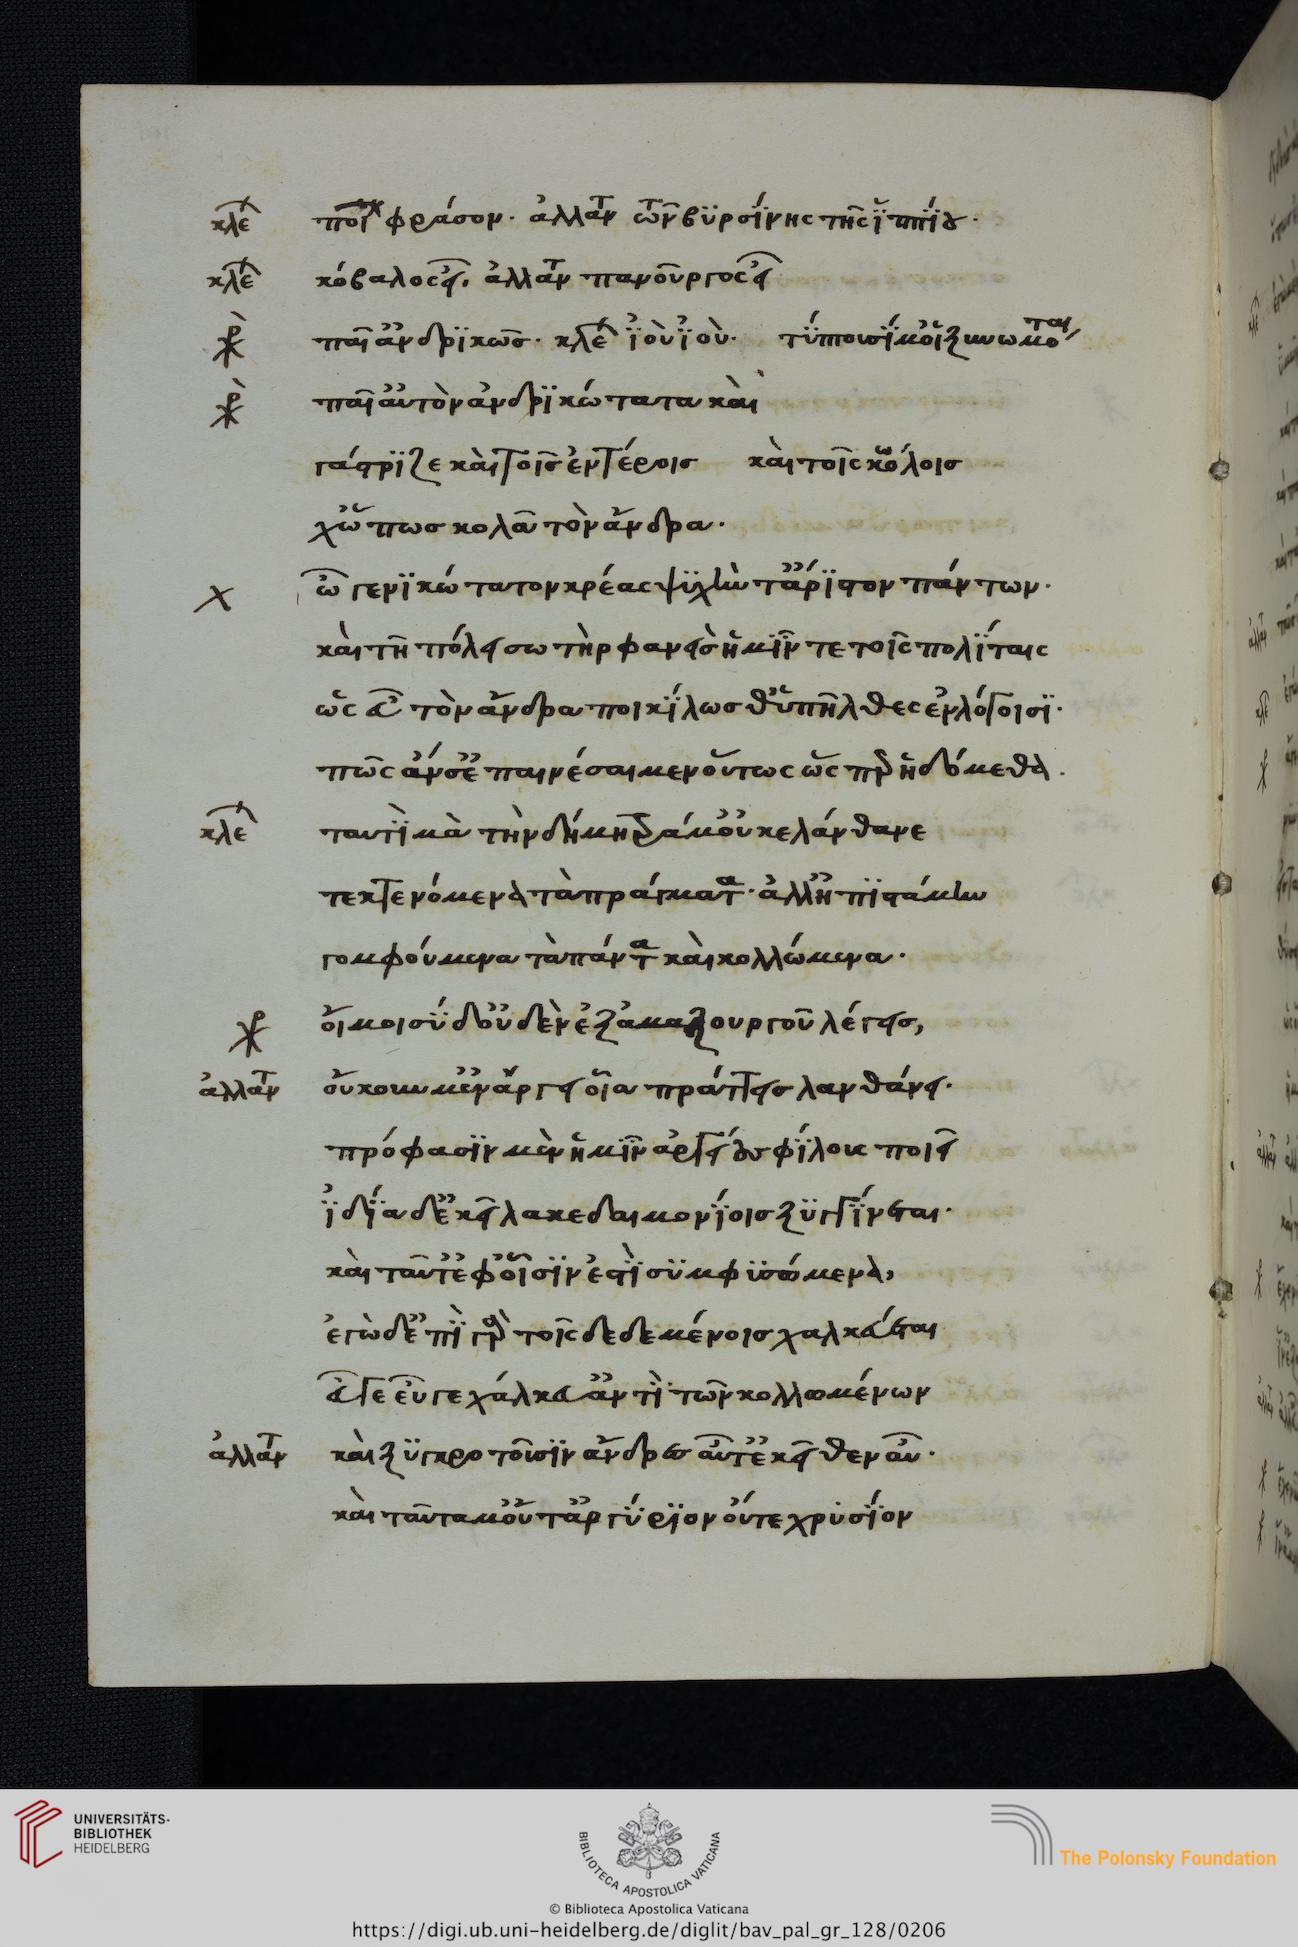 κλε ποι φράσον· ἀλλαν τῶν βϋρσΐνης τῆς ἱππΐου·
κλε κόβαλος εἶ. ἀλλαν πανοῦργος εἶ
χρ παῖ ἀνδρϊκῶς· κλε ἰοὺ ἰοὺ· τύπτουσΐ μ' οἱ ξυνωμόται
χρ παῖ αὐτὸν ἀνδρϊκώτατα καὶ
γάστρϊζε καὶ τοῖς ἐντέροις καὶ τοῖς κόλοις
χὥπως κολᾶ τὸν ἄνδρα·
χ ὦ γενϊκώτατον κρέας ψϋχήν τ' ἄρϊστον πάντων·
καὶ τῆ πόλει σωτὴρ φανεὶς ἡμῖν τε τοῖς πολΐταις
ὡς εὖ τὸν ἄνδρα ποικΐλως θ' ὑπῆλθες ἐν λόγοισϊ·
πῶς ἄν σ' ἐπαινέσαιμεν οὕτως ὥσπερ ἡδόμεθα.
κλε ταυτῒ μὰ τὴν δήμητρά μ' οὐκ ἐλάνθανε
τεκτενόμενα τὰ πράγματα· ἀλλ' ἠπϊστάμην
γομφούμενα τὰ πάντα καὶ κολλώμενα·
χρ οἴμοι σὺ δ' οὐδὲν ἐξ ἁμαξουργοῦ λέγεις,
ἀλλαν οὔκουν μ' ἐν ἄργει οἷα πράττεις λανθάνει·
πρόφασϊν μὲν ἡμῖν ἀργείους φΐλους ποιεῖ
ἰδΐα δ' ἐκεῖ λακεδαιμονΐοις ξϋγγΐνεται·
καὶ ταῦτ' ἐφ' οἷσϊν ἐστῒ σϋμφϋσώμενα,
ἐγὼ δ' ἐπῒ γὰρ τοῖς δεδεμένοις χαλκεύεται
εὖ γε εὖ γε χάλκευ' ἀντῒ τῶν κολλωμένων
ἀλλαν καὶ ξϋγκροτοῦσϊν ἄνδρες αὖτ' ἐκεῖθεν αὖ·
καὶ ταῦτα μ' οὔτ' ἀργΰρϊον οὔτε χρυσΐον
UNIVERSITÄTS-
BIBLIOTHEK
HEIDELBERG
BIBLIOTECA APOSTOLICA VATICANA
© Biblioteca Apostolica Vaticana
The Polonsky Foundation
https://digi.ub.uni-heidelberg.de/diglit/bav_pal_gr_128/0206